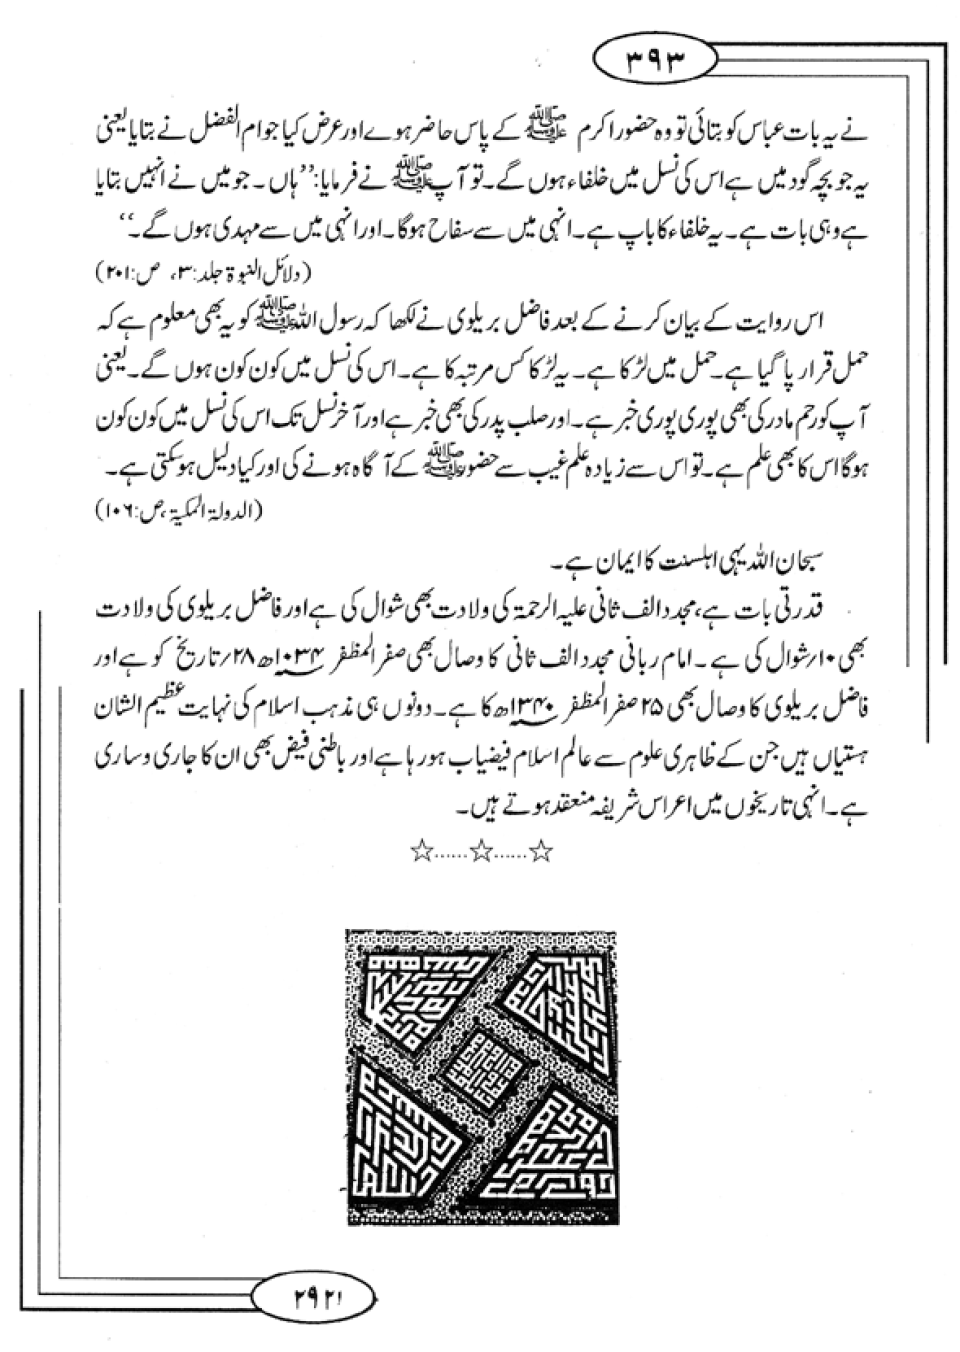 ۳۹۳
نے یہ بات عباس کو بتائی تو وہ حضور اکرم ﷺ کے پاس حاضر ہوے اور عرض کیا جو ام الفضل نے بتایا یعنی
یہ جو بچہ گود میں ہے اس کی نسل میں خلفاء ہوں گے۔ تو آپ ﷺ نے فرمایا: ’’ہاں۔ جو میں نے انہیں بتایا
ہے وہی بات ہے۔ یہ خلفاء کا باپ ہے۔ انہی میں سے سفاح ہوگا۔ اور انہی میں سے مہدی ہوں گے۔‘‘
(دلائل النبوۃ جلد:۳، ص:۲۰۱)
اس روایت کے بیان کرنے کے بعد فاضل بریلوی نے لکھا کہ رسول اللہ ﷺ کو یہ بھی معلوم ہے کہ
حمل قرار پا گیا ہے۔ حمل میں لڑکا ہے۔ یہ لڑکا کس مرتبہ کا ہے۔ اس کی نسل میں کون کون ہوں گے۔ یعنی
آپ کو رحم مادر کی بھی پوری پوری خبر ہے۔ اور صلب پدر کی بھی خبر ہے اور آخر نسل تک اس کی نسل میں کون کون
ہوگا اس کا بھی علم ہے۔ تو اس سے زیادہ علم غیب سے حضور ﷺ کے آگاہ ہونے کی اور کیا دلیل ہوسکتی ہے۔
(الدولۃ المکیۃ، ص:۱۰۶)
سبحان اللہ یہی اہلسنت کا ایمان ہے۔
قدرتی بات ہے، مجدد الف ثانی علیہ الرحمۃ کی ولادت بھی شوال کی ہے اور فاضل بریلوی کی ولادت
بھی ۱۰/شوال کی ہے۔ امام ربانی مجدد الف ثانی کا وصال بھی صفر المظفر ۱۰۳۴ھ ۲۸/تاریخ کو ہے اور
فاضل بریلوی کا وصال بھی ۲۵ صفر المظفر ۱۳۴۰ھ کا ہے۔ دونوں ہی مذہب اسلام کی نہایت عظیم الشان
ہستیاں ہیں جن کے ظاہری علوم سے عالم اسلام فیضیاب ہو رہا ہے اور باطنی فیض بھی ان کا جاری و ساری
ہے۔ انہی تاریخوں میں اعراس شریفہ منعقد ہوتے ہیں۔
☆......☆......☆
۲۹۲۱